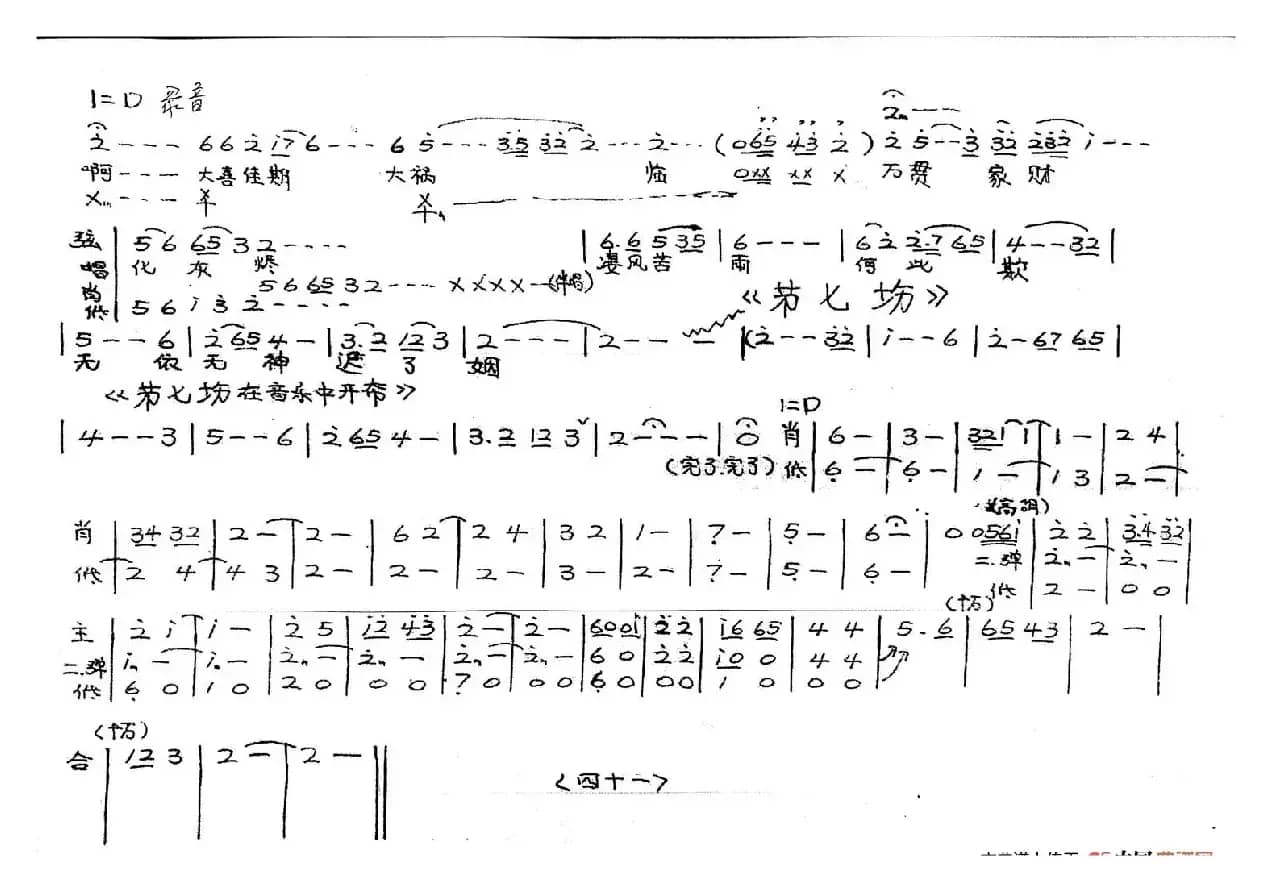 1=D 录音
2 - - -
2 - - - 6 6 2 i7 6 - - - 6 5 - - - 35 32 2 - - - 2 - - - (065 43 2) 2 5 - - 3 32 232 i - - -
啊 - - - 大喜佳期 大祸 临 0xx xx x 万贯 家 财
弦 | 5 6 65 3 2 - - - - | 6.6 5 35 | 6 - - - | 6 2 2.7 65 | 4 - - 32 |
唱 化 灰 烬 凄风苦 雨 何 此 欺
肖 5 6 65 3 2 - - - X X X X — (伴唱)
低 5 6 i 3 2 - - - -
《第七场》
| 5 - - 6 | 2 65 4 - | 3.2 12 3 | 2 - - - | 2 - - - | (2 - - 32 | i - - 6 | 2 - 67 65 |
无 依 无 神 遮 了 姻
《第七场在音乐中开布》
1=D
| 4 - - 3 | 5 - - 6 | 2 65 4 - | 3.2 12 3 | 2 - - - | 0 肖 | 6 - | 3 - | 321 1 | 1 - | 2 4 |
(完了.完了) 低 | 6 - | 6 - | 1 - | 1 3 | 2 - |
肖 | 34 32 | 2 - | 2 - | 6 2 | 2 4 | 3 2 | 1 - | 7 - | 5 - | 6 - | 0 056i | 2 2 | 3.4 32 |
低 | 2 4 | 4 3 | 2 - | 2 - | 2 - | 3 - | 2 - | 7 - | 5 - | 6 - | 二.弹 | 2 - | 2 - |
低 | 2 - | 0 0 |
主 | 2 i | i - | 2 5 | i2 43 | 2 - | 2 - | 600i | 22 | i6 65 | 4 4 | 5.6 | 65 43 | 2 - |
二.弹 | i - | i - | 2 - | 2 - | 2 - | 2 - | 6 0 | 22 | i0 0 | 4 4 |
低 | 6 0 | 1 0 | 2 0 | 0 0 | 7 0 | 0 0 | 6 0 | 00 | 1 0 | 0 0 |
合 | 12 3 | 2 - | 2 - ‖
<四十一>